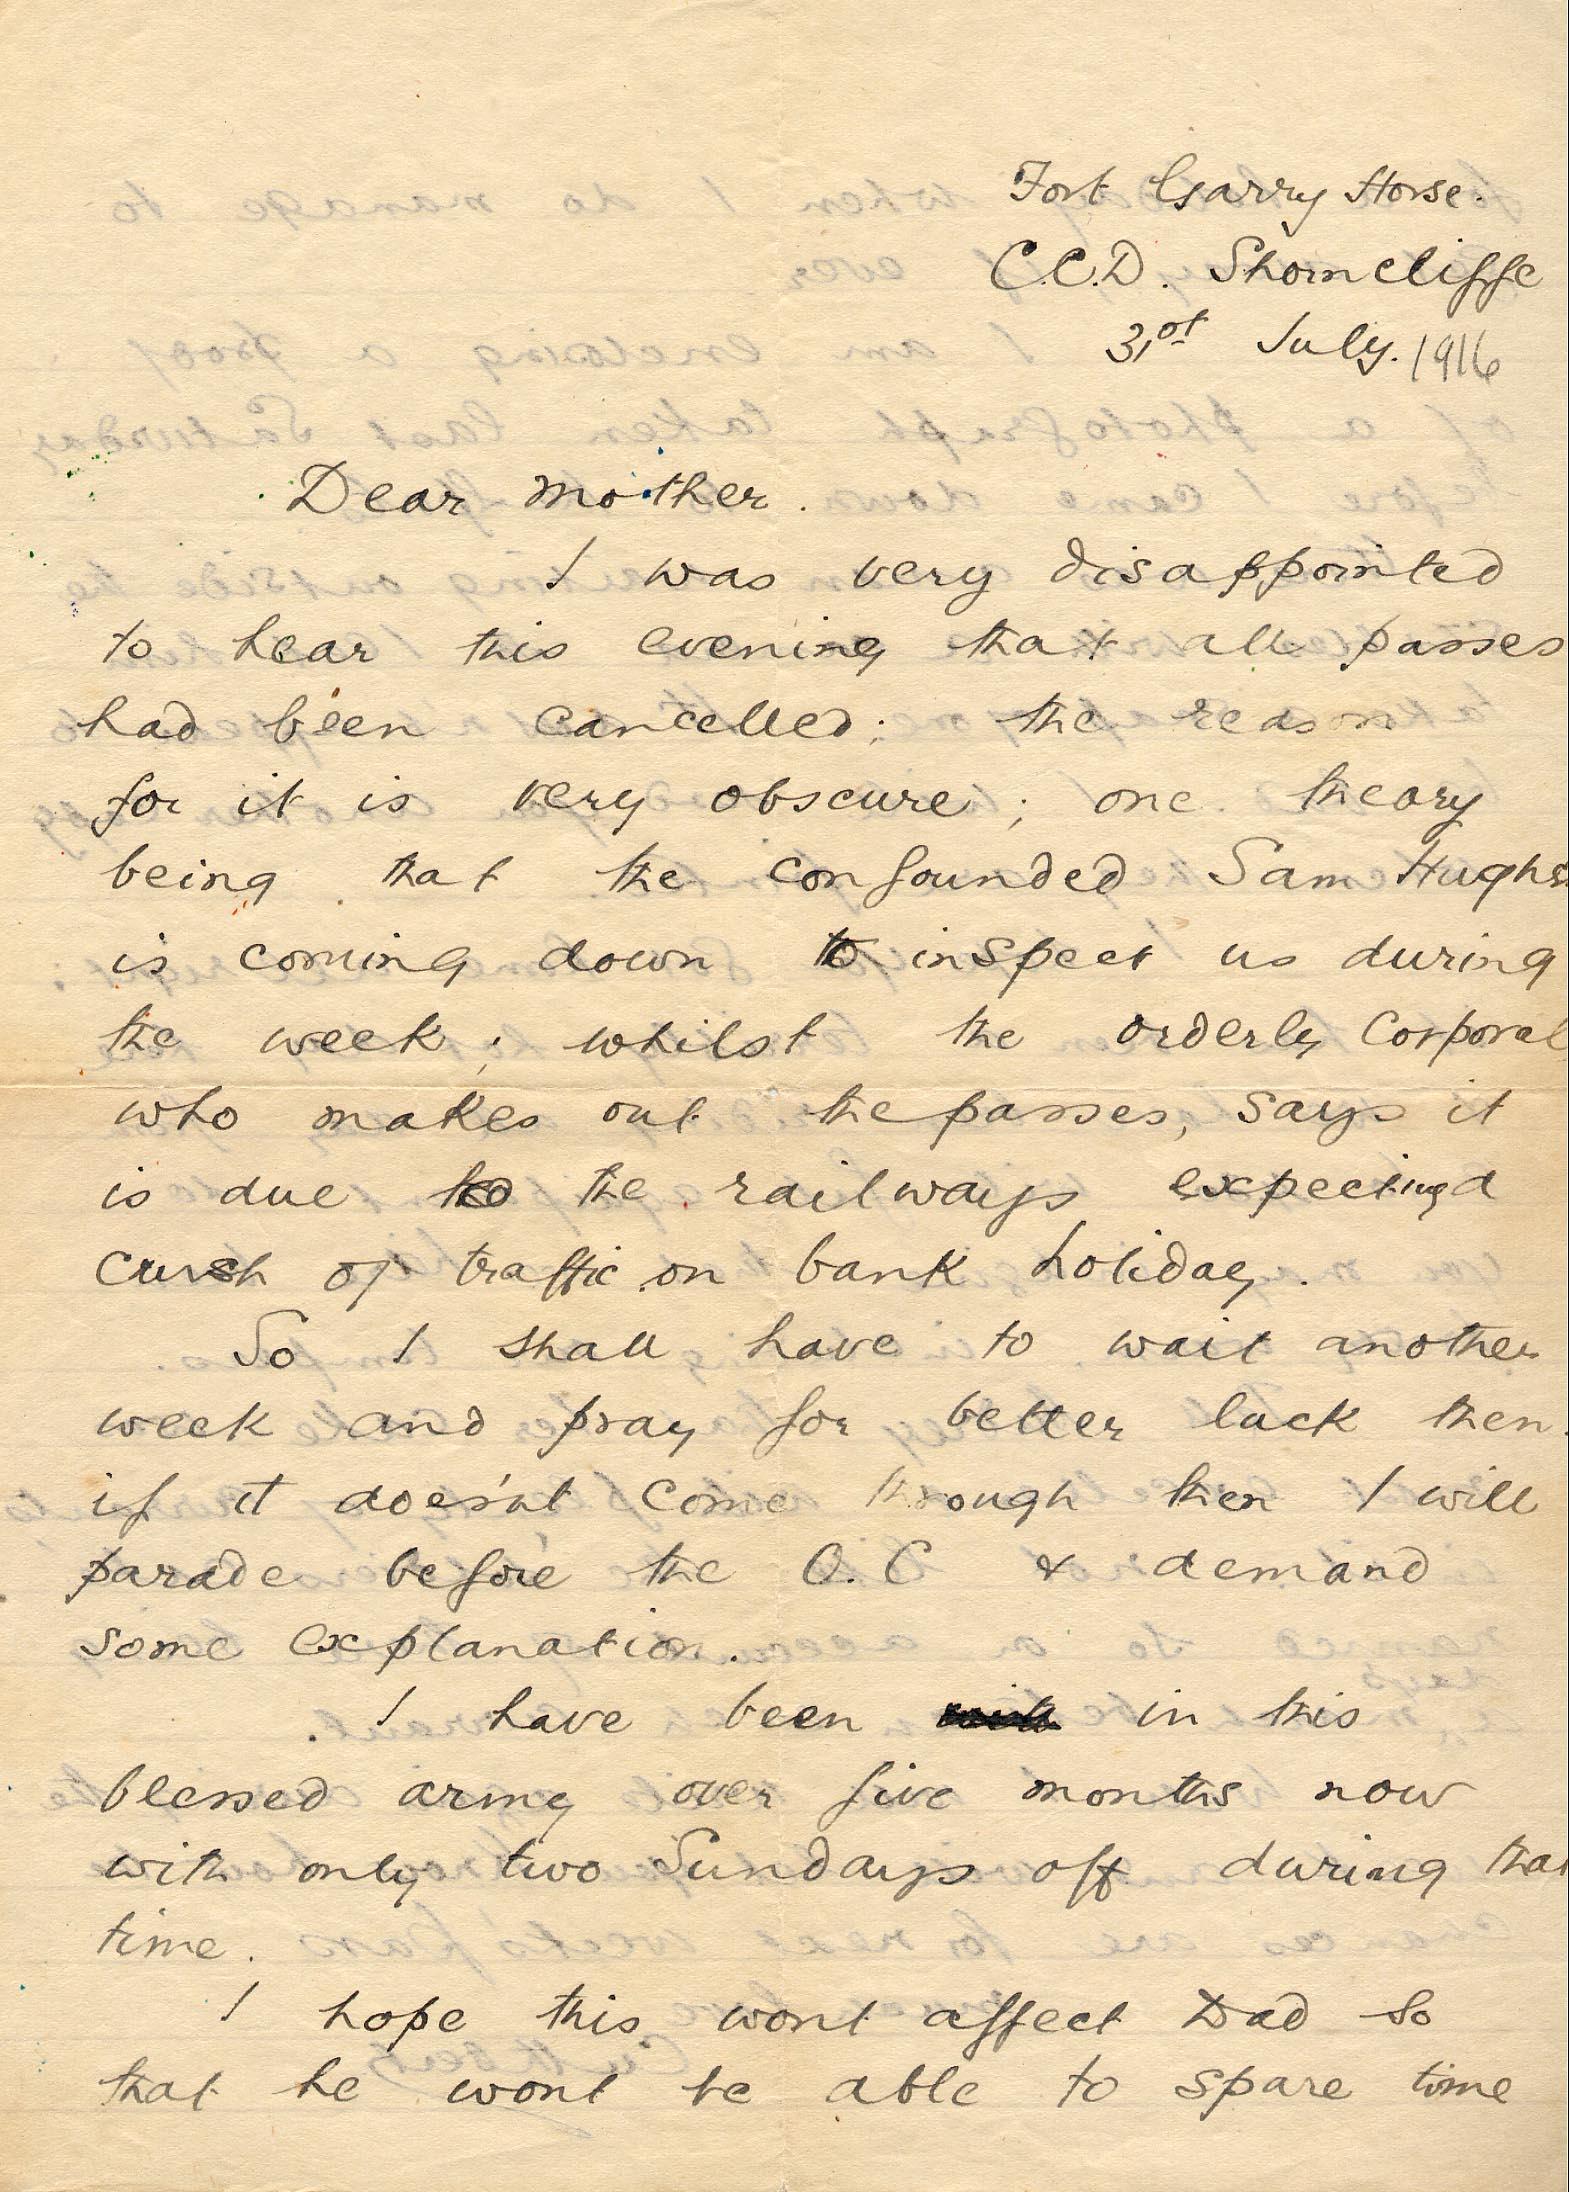 Fort Garry Horse.
C.C.D. Shorncliffe
31st July. 1916
Dear Mother.
I was very disappointed
to hear this evening that all passes
had been cancelled; the reason
for it is very obscure; one theory
being that the confounded Sam Hughes
is coming down to inspect us during
the week; whilst the orderly Corporal
who makes out the passes, says it
is due to the railways expecting a
crush of traffic on bank holiday.
So I shall have to wait another
week and pray for better luck then.
if it does'nt come through then I will
parade before the O.C & demand
some explanation.
I have been in this
blessed army over five months now
with only two Sundays off during that
time.
I hope this wont affect Dad so
that he wont be able to spare time